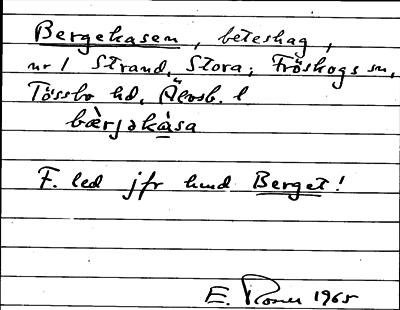 Bergekasen, beteshag,
nr 1 Strand, Stora; Fröskogs sn,
Tössbo hd, Älvsb. l
bæ̀rjəkàsa
F. led jfr hmd Berget!
E. 1965